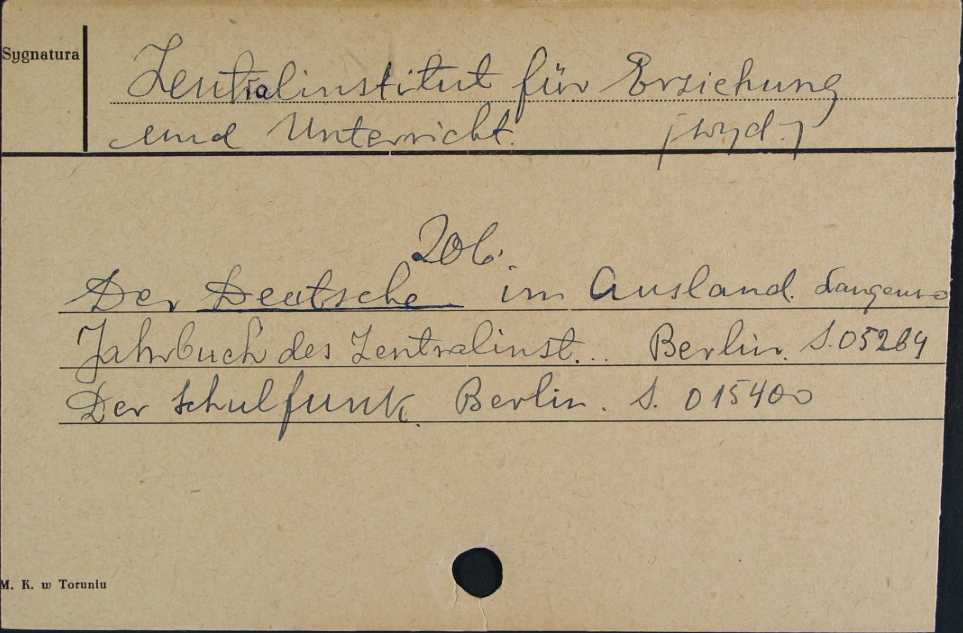 Sygnatura
Zentralinstitut für Erziehung
und Unterricht. [wyd.]
Zob.
Der Deutsche im Ausland.
Jahrbuch des Zentralinst... Berlin. S.05284
Der Schulfunk. Berlin. S. 015400
M. K. w Toruniu